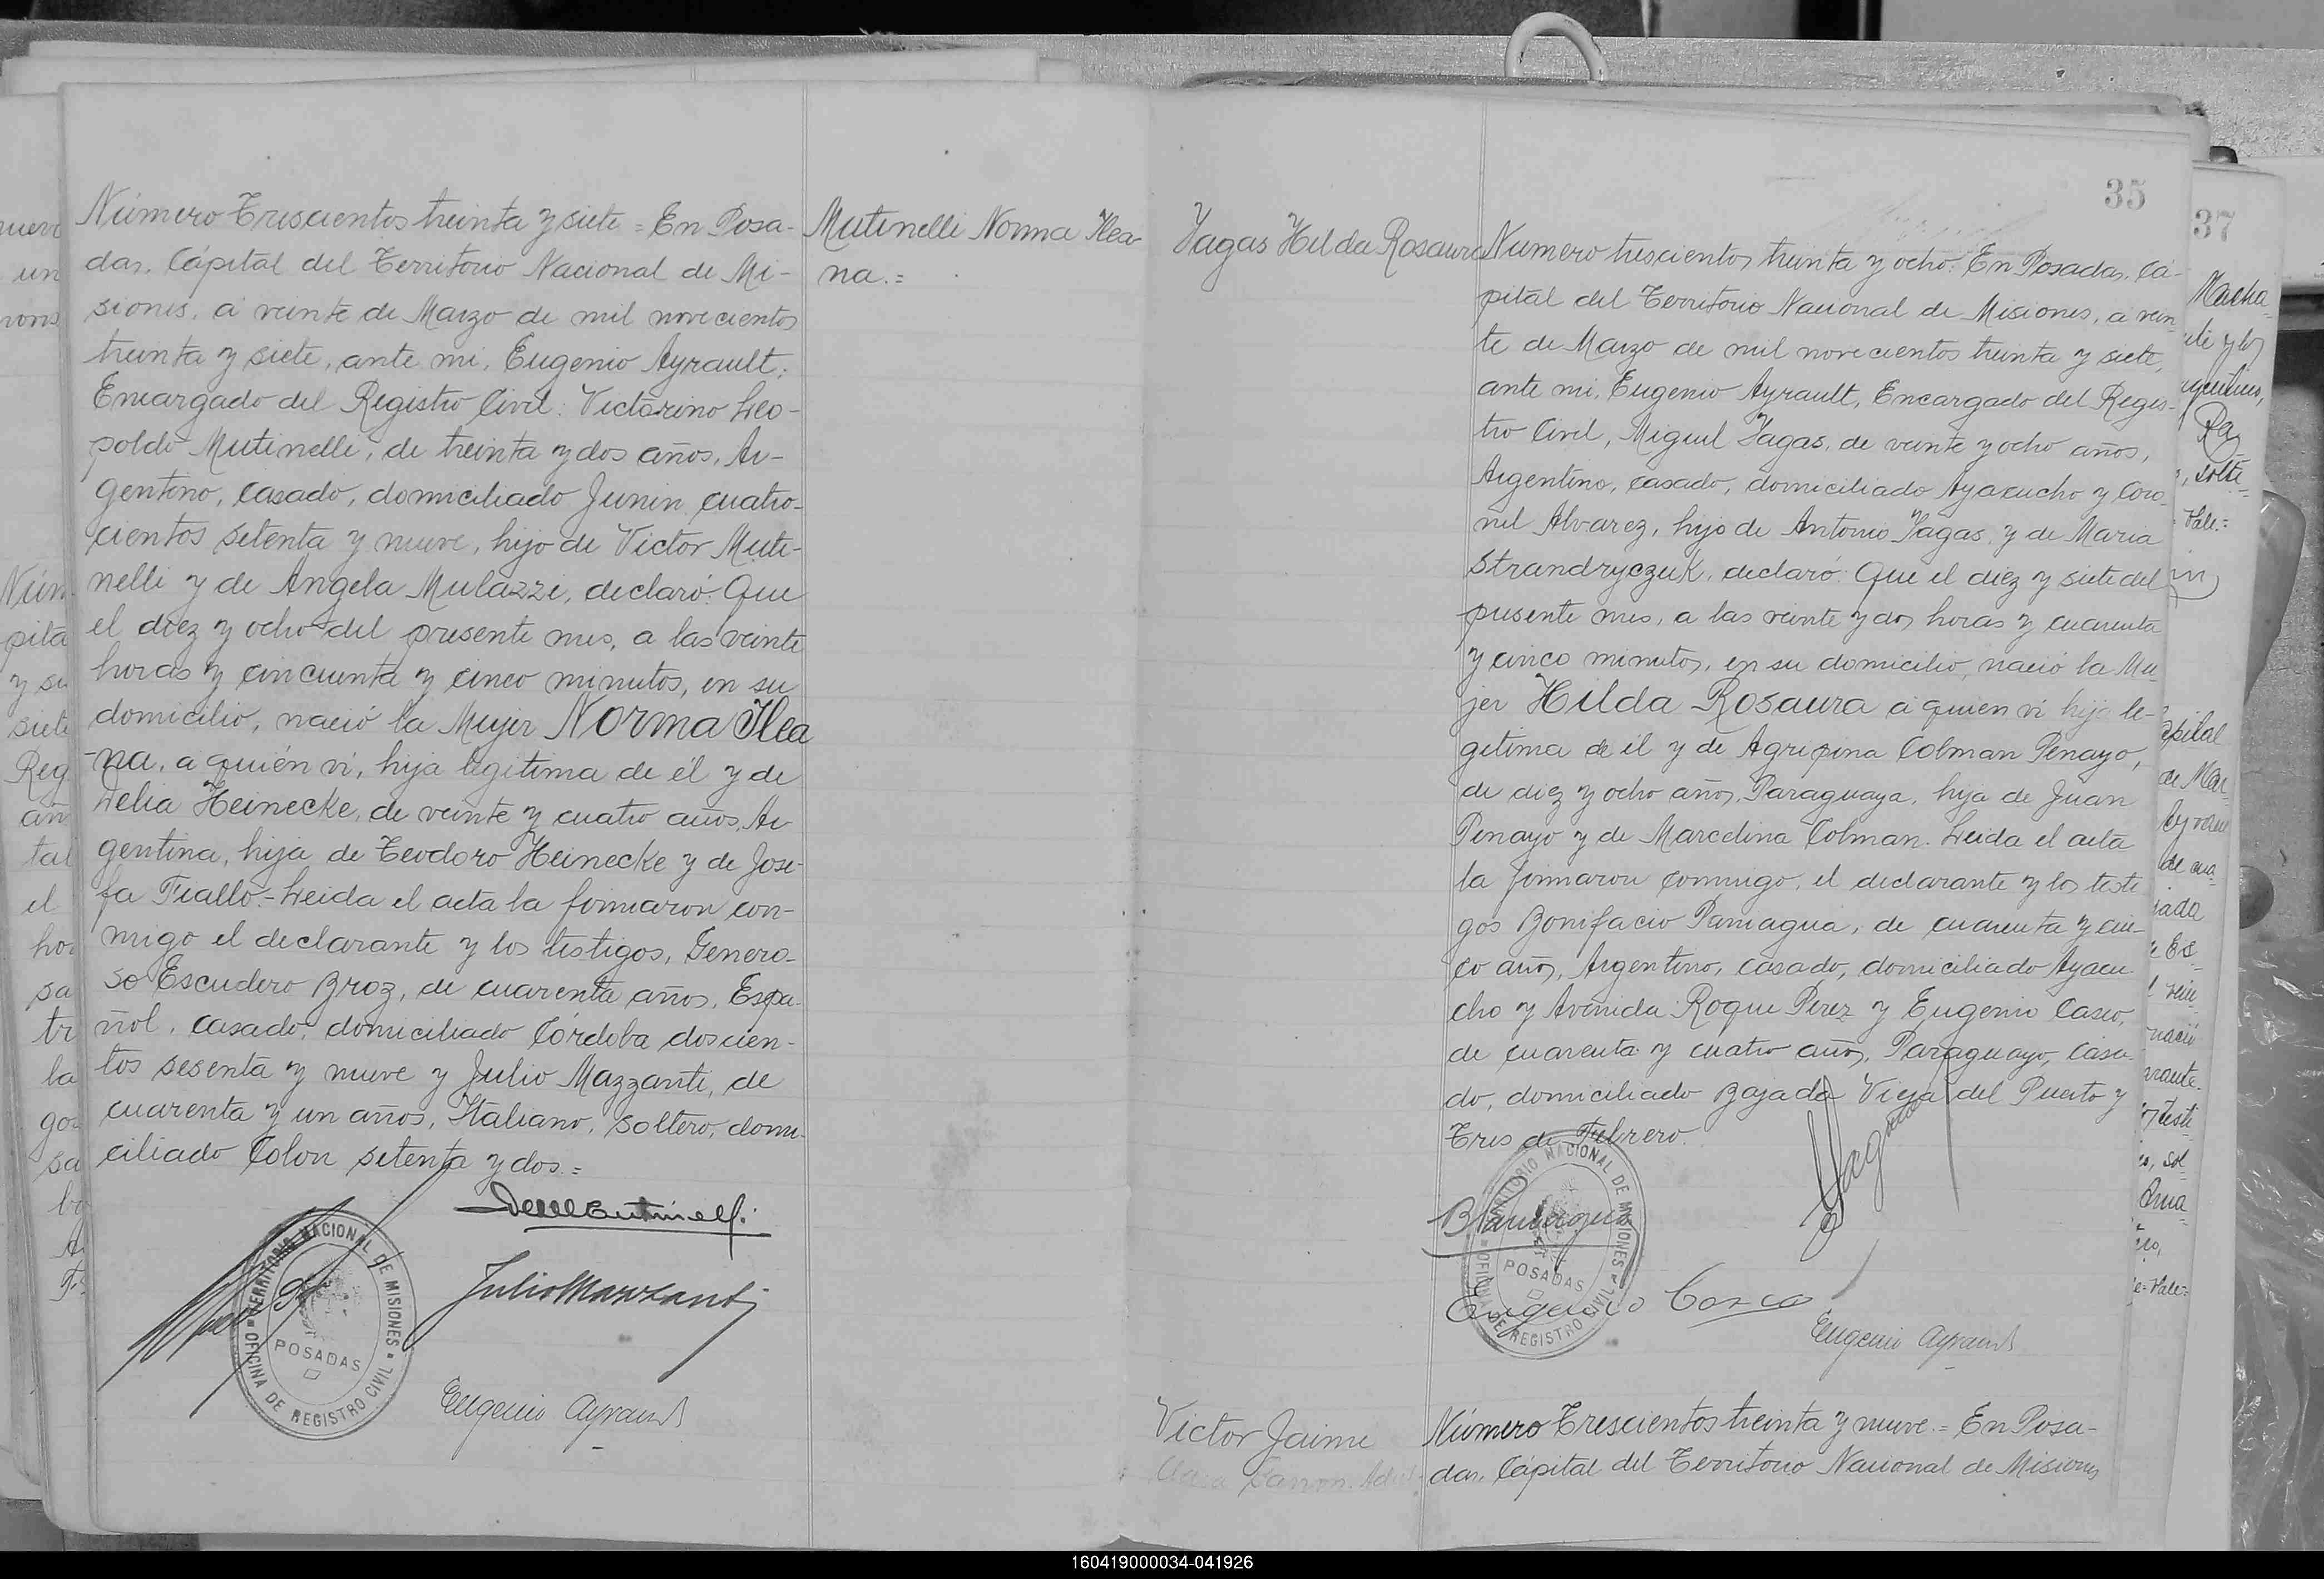 Número Trescientos treinta y siete = En Posa-
das, Cápital del Territorio Nacional de Mi-
siones, a veinte de Marzo de mil novecientos
treinta y siete, ante mi, Eugenio Ayrault,
Encargado del Registro Civil: Victorino Leo-
poldo Mutinelli, de treinta y dos años, Ar-
gentino, casado, domiciliado Junin cuatro-
cientos setenta y nueve, hijo de Victor Muti-
nelli y de Angela Mulazzi, declaró: Que
el diez y ocho del presente mes, a las veinte
horas y cincuenta y cinco minutos, en su
domicilio, nació la Mujer Norma Ilea
-na, a quién vi, hija legitima de él y de
Delia Heinecke, de veinte y cuatro años, Ar
gentina, hija de Teodoro Heinecke y de Jose-
fa Fiallo.- Leida el acta la firmaron con-
migo el declarante y los testigos, Genero-
so Escudero Broz, de cuarenta años, Espa-
ñol, casado, domiciliado Córdoba doscien-
tos sesenta y nueve y Julio Mazzanti, de
cuarenta y un años, Italiano, soltero, domi-
ciliado Colon setenta y dos.=
Mutinelli Norma Ilea-
na.=
Julio Mazzanti
TERRITORIO NACIONAL DE MISIONES
POSADAS
OFICINA DE REGISTRO CIVIL
Eugenio Ayrault
35
Yagas Hilda Rosaura
Numero trescientos treinta y ocho: En Posadas, Cá-
pital del Territorio Nacional de Misiones, a vein
te de Marzo de mil novecientos treinta y siete,
ante mi, Eugenio Ayrault, Encargado del Regis-
tro Civil, Miguel Yagas, de veinte y ocho años,
Argentino, casado, domiciliado Ayacucho y Coro-
nel Alvarez, hijo de Antonio Yagas y de Maria
Strandryczuk, declaró: Que el diez y siete del
presente mes, a las veinte y dos horas y cuarenta
y cinco minutos, en su domicilio, nació la Mu-
jer Hilda Rosaura a quien vi hija le-
gitima de él y de Agripina Colman Penayo,
de diez y ocho años, Paraguaya, hija de Juan
Penayo y de Marcelina Colman. Leida el acta
la firmaron conmigo, el declarante y los testi
gos Bonifacio Paniagua, de cuarenta y cin-
co años, Argentino, casado, domiciliado Ayacu
cho y Avenida Roque Perez y Eugenio Casco,
de cuarenta y cuatro años, Paraguayo, casa-
do, domiciliado Bajada Vieja del Puerto y
Tres de Febrero.
BPaniagua
TERRITORIO NACIONAL DE MISIONES
POSADAS
OFICINA DE REGISTRO CIVIL
Eugenio Casco
Eugenio Ayrault
Victor Jaime
Número Trescientos treinta y nueve.= En Posa-
das, Cápital del Territorio Nacional de Misiones
37
160419000034-041926